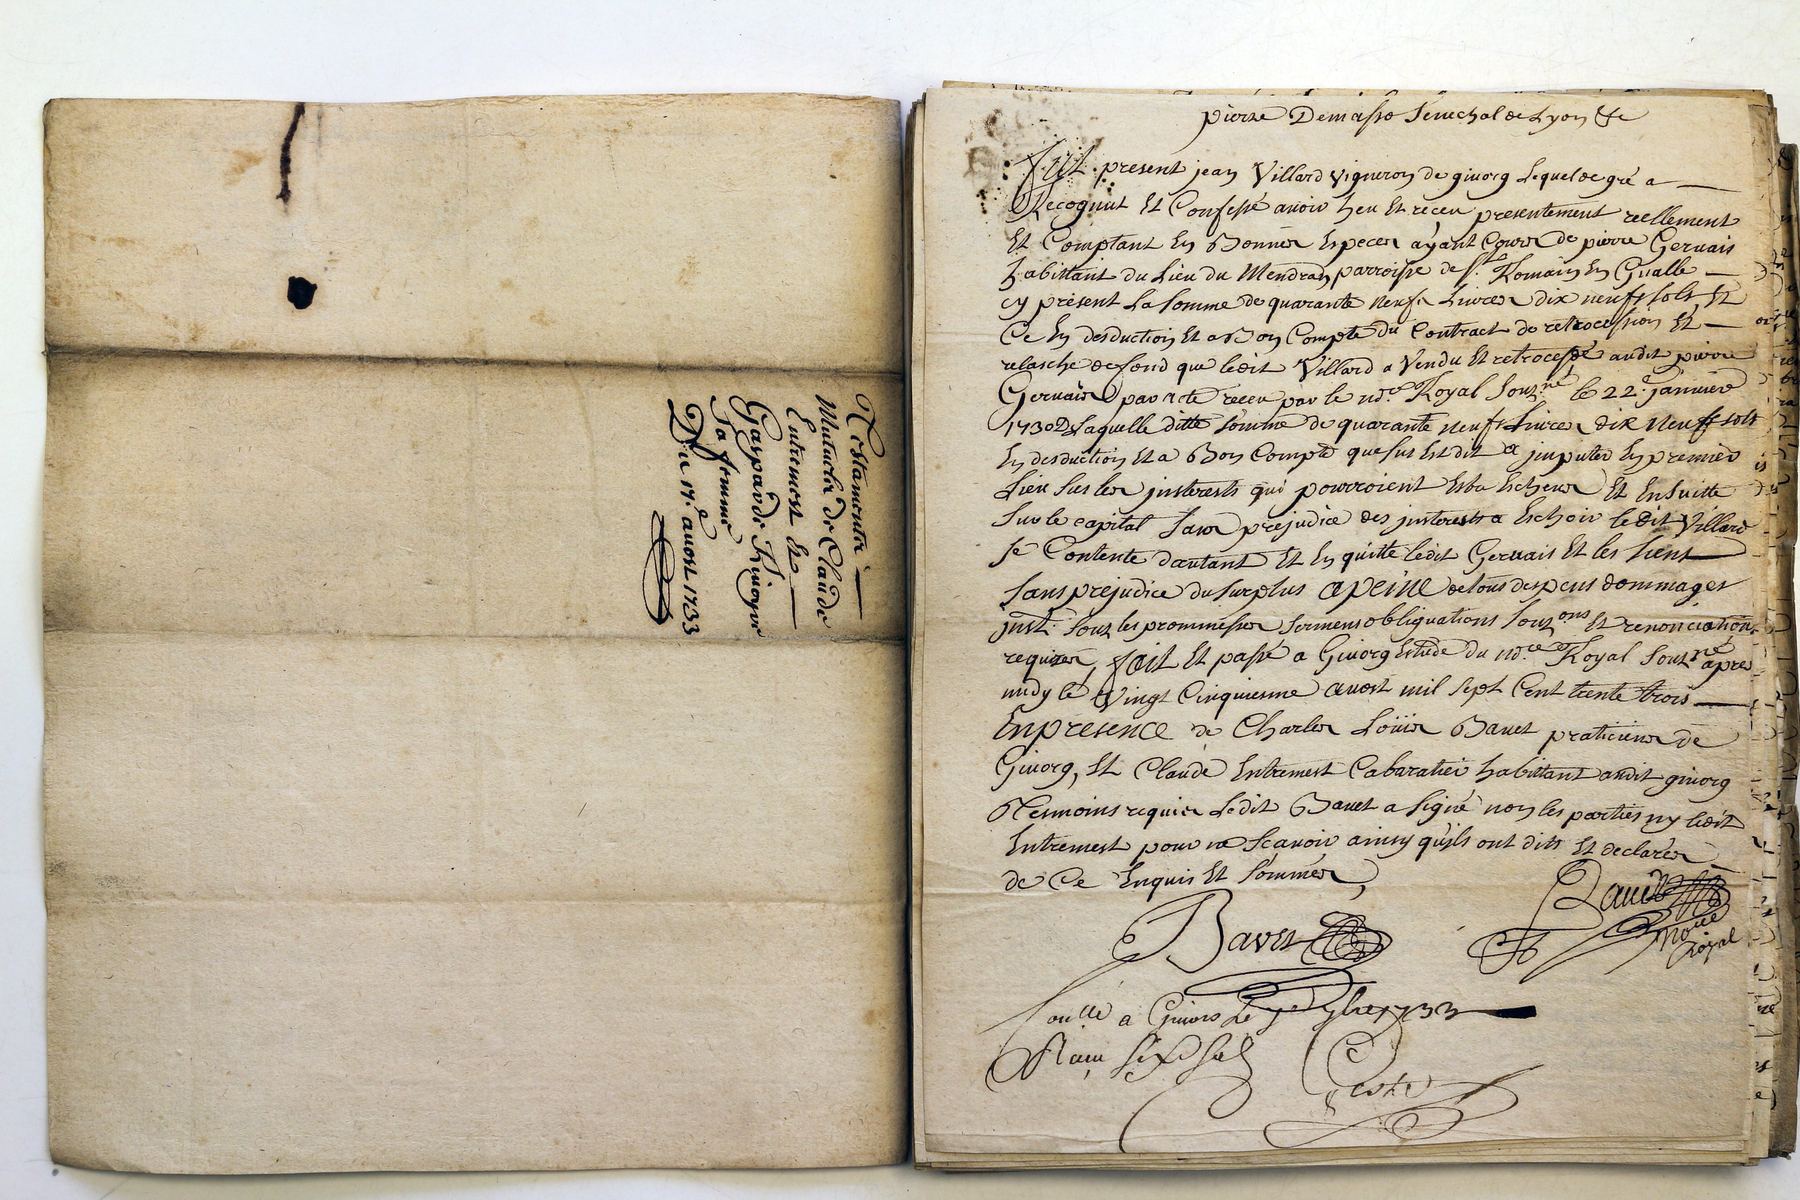 Testamentz
Mutuelz de Claude
Entremont Et
Gasparde Rivoyre
Sa femme
Du 17e auost 1733
pierre Demasso Senechal de Lyon &c
fut present jean Villard vigneron de givorg Lequel de gré a
Recognut Et Confessé avoir heu Et receu presentement reellement
Et Comptant En Bonnes Especes ayant Cours de pierre Gervais
habittant du Lieu du Mendran parroisse de St. Romain En Gualle
cy présent La somme de quarante neufs Livres dix neufs sols Et
Ce En desduction Et a Bon Compte du Contract de retrocession Et
relasche de fond que ledit Villard a Vendu Et retrocesdé audit pierre
Gervais par acte receu par le nore Royal Souzné le 22e janvier
1730 Laquelle ditte Somme de quarante neufs Livres dix Neuff sols
En desduction Et a Bon Compte que sus Est dit a jmputer En premier
Lieu Sur les jnterests qui pourroient Estre Escheus Et Ensuitte
Sur le capital Sans prejudice des jnterests a Eschoir ledit Villard
Se Contente dautant Et En quitte ledit Gervais Et les Siens
Sans prejudice du surplus a peine de tous despens dommages
jnst. Souz les prommesses Serments obliguations Souzons Et renonciations
requises, fait Et passé a Givorg Estude du nore Royal Souzné apres
midy le Vingt Cinquiesme auost mil sept Cent trente trois
En presence de Charles Loüis Bavet praticiens de
Givorg, Et Claude Entremont Cabaratier habittant audit givorg
Tesmoins requis Ledit Bavet a signé non les parties ny ledit
Entremont pour ne Scavoir ainsy qu'ils ont dits Et declarés
de Ce Enquis Et Sommés,
Bavet
nore
royal
a Givors Le 7bre 1733
Reçu six sols